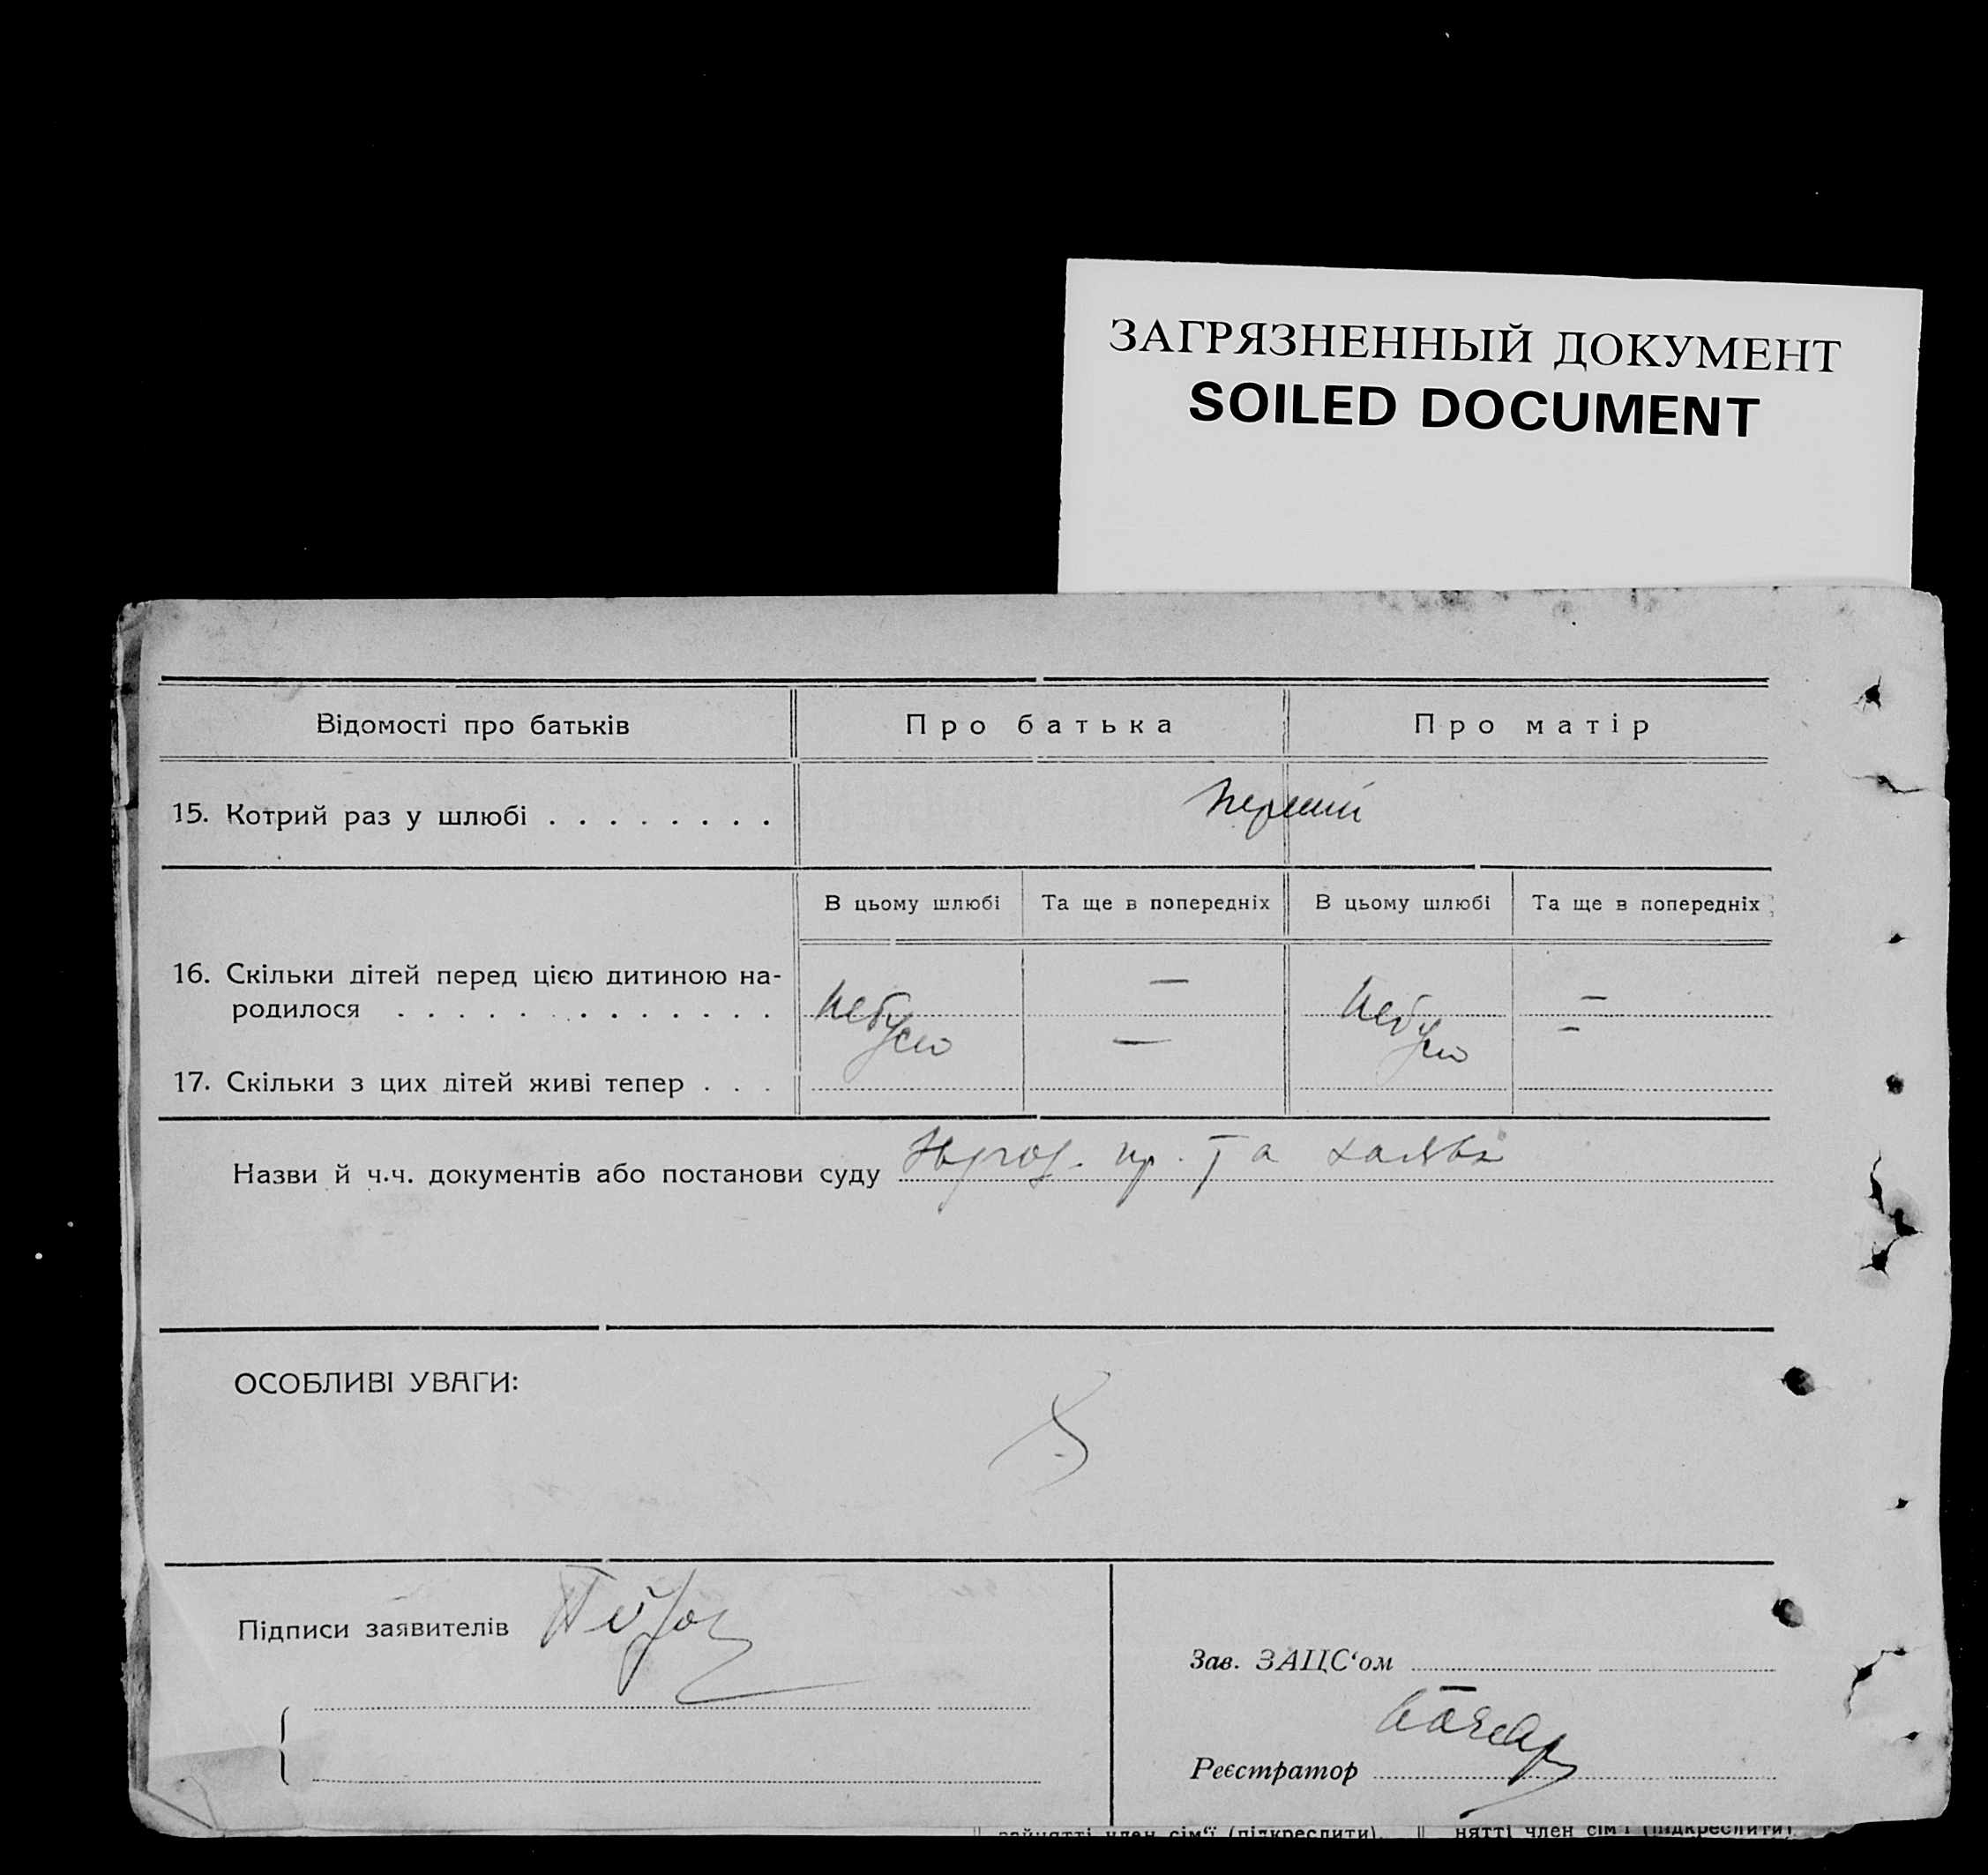 ЗАГРЯЗНЕННЫЙ ДОКУМЕНТ
SOILED DOCUMENT
Відомості про батьків Про батька Про матір
15. Котрий раз у шлюбі . . . . . . . . перший
В цьому шлюбі Та ще в попередніх В цьому шлюбі Та ще в попередніх
16. Скільки дітей перед цією дитиною на-
родилося . . . . . . . . . . . . . небуло — небуло —
17. Скільки з цих дітей живі тепер . . . — –
Назви й ч.ч. документів або постанови суду та
ОСОБЛИВІ УВАГИ:
Підписи заявителів
Зав. ЗАЦС‘ом
Реєстратор
зайнятті член сім‘ї (підкреслити). нятті член сім‘ї (підкреслити)